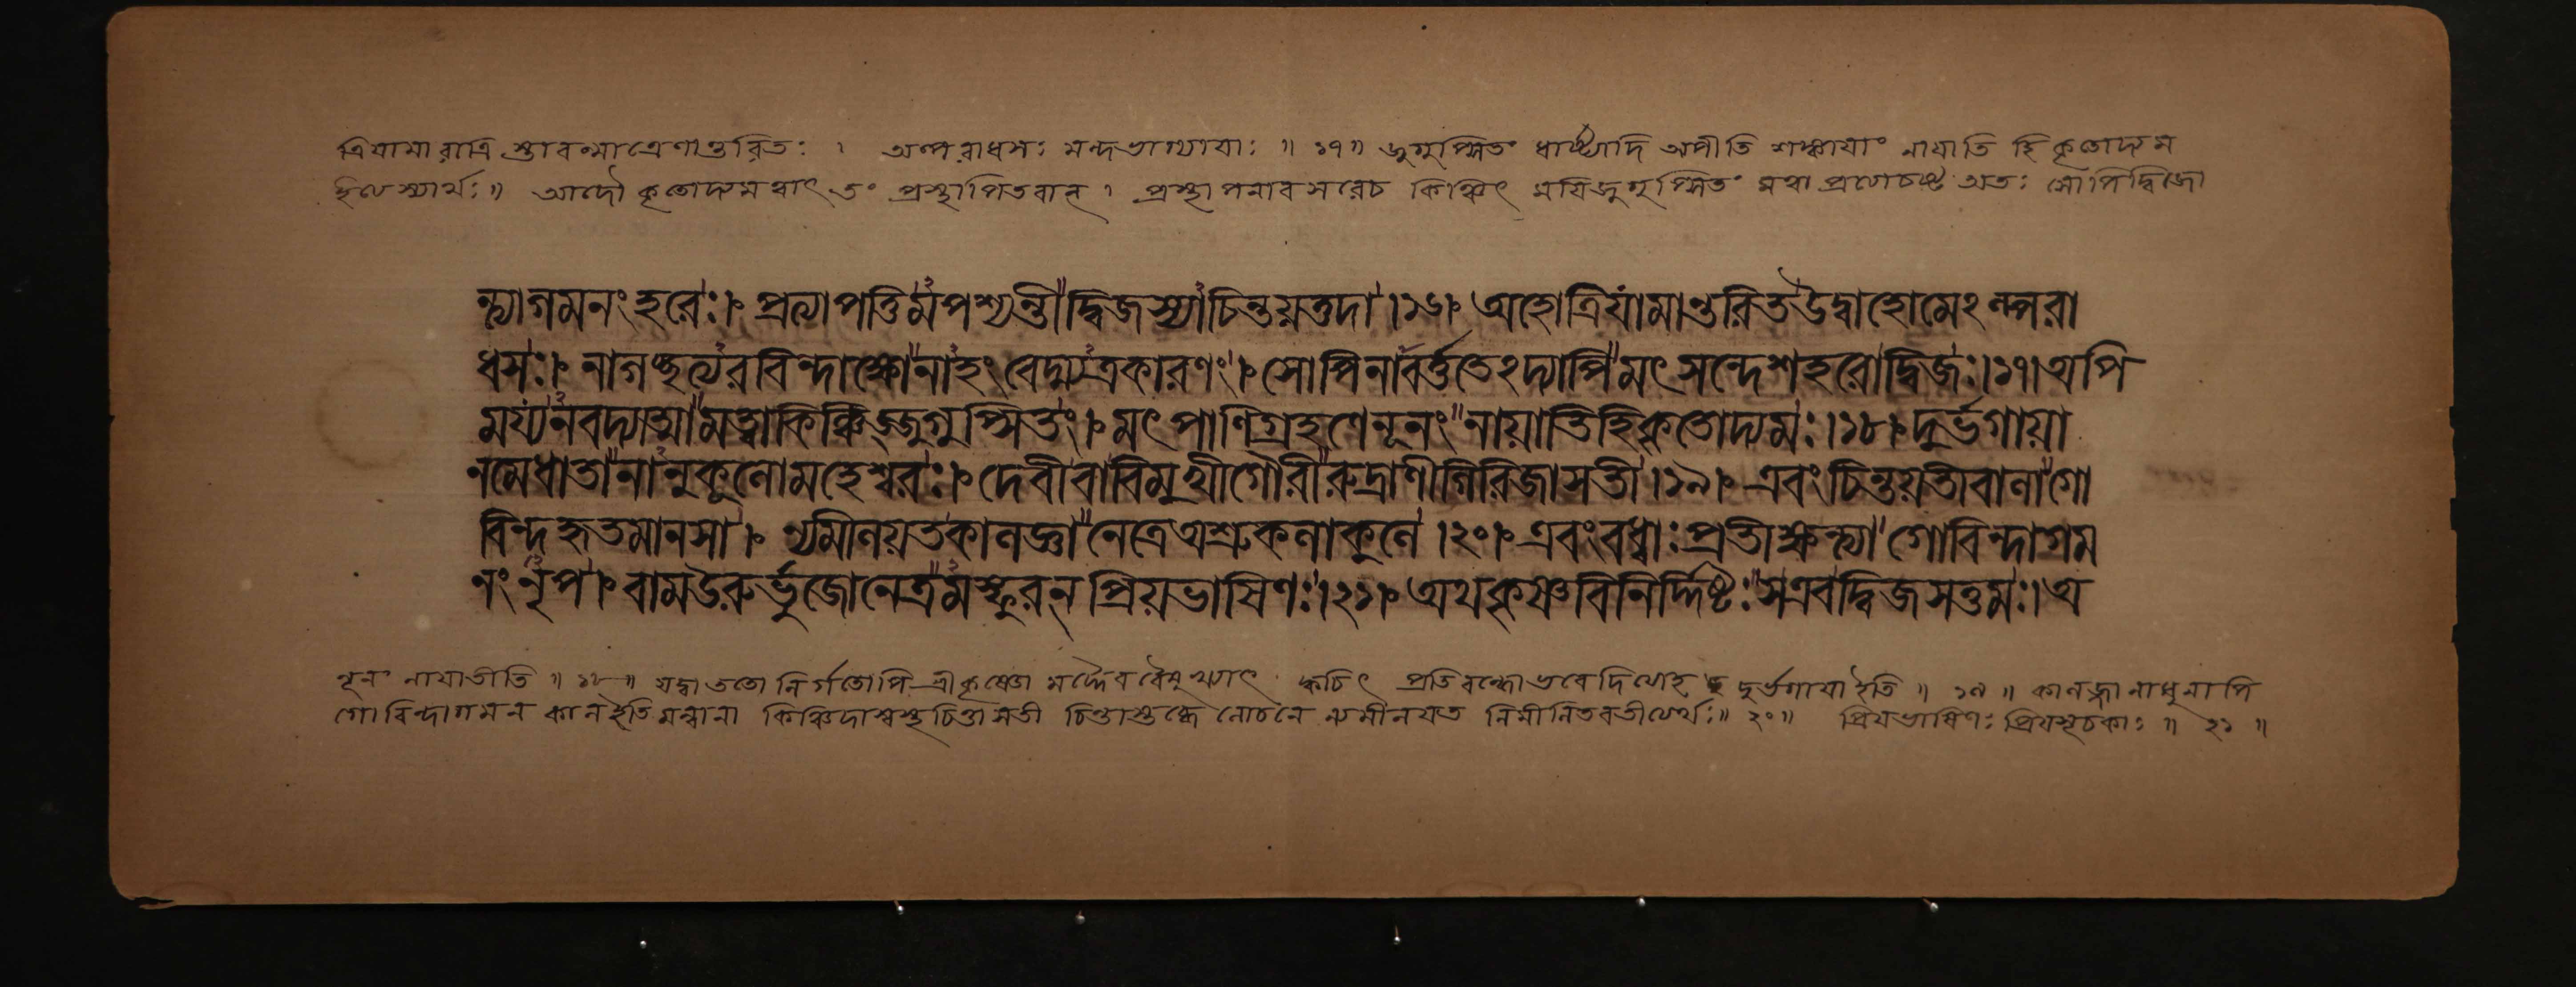 ত্রিযামা রাত্রি স্তাবন্মাত্রেণান্তরিতঃ । অল্পরাধসঃ মন্দভাগ্যাযাঃ ॥ ১৭॥ জুগুপ্সিতং ধার্ষ্ট্যাদি অপীতি শঙ্কাযাং নাযাতি হি কৃতোদ্যম
ইত্যস্যার্থঃ॥ আদৌ কৃতোদ্যমত্বাৎ তং প্রস্থাপিতবান্ । প্রস্থাপনাবসরেচ কিঞ্চিৎ মযিজুগুপ্সিতং মত্বা অতঃ সোপিদ্বিজো
ন্ত্যাগমনংহরেঃ। প্রত্যাপত্তিমপশ্যন্তীদ্বিজস্যাচিন্তয়ত্তদা।১৬। অহোত্রিযামান্তরিতউদ্বাহোমেঽল্পরা
ধসঃ। নাগচ্ছত্যরবিন্দাক্ষোনাহংবেদ্ম্যত্রকারণং। সোপিনাবর্ত্ততেঽদ্যাপিমৎসন্দেশহরোদ্বিজঃ।১৭।অপি
ময্যনবদ্যাত্মামত্বাকিঞ্চিজ্জুগুপ্সিতং। মৎপাণিগ্রহণেনূনংনায়াতিহিকৃতোদ্যমঃ।১৮। দুর্ভগায়া
নমেধাতানানুকূলোমহেশ্বরঃ। দেবীবাবিমুখীগৌরীরুদ্রাণীগিরিজাসতী।১৯। এবংচিন্তয়তীবালাগো
বিন্দহৃতমানসা। ন্যমীলয়তকালজ্ঞানেত্রেঅশ্রুকলাকুলে।২০। এবংবধ্বাঃপ্রতীক্ষন্ত্যাগোবিন্দাগম
নংনৃপ। বামউরুর্ভুজোনেত্রমস্ফুরন্ প্রিয়ভাষিণঃ।২১। অথকৃষ্ণবিনির্দ্দিষ্টঃসএবদ্বিজসত্তমঃ।অ
নূনং নাযাতীতি ॥ ১৮॥ যদ্বা ততো নির্গতোপি শ্রীকৃষ্ণো মদ্দৈববৈমুখ্যাৎ ক্বচিৎ প্রতিবন্ধোভবেদিত্যাহ দুর্ভগাযা ইতি ॥ ১৯ ॥ কালজ্ঞা নাধুনাপি
গোবিন্দাগমন কাল ইতি মন্বানা কিঞ্চিদাশ্বস্তচিত্তা সতী লোচনে ন্যমীলযত নিমীলিতবতীত্যর্থঃ॥ ২০॥ প্রিযভাষিণঃ প্রিযসূচকাঃ ॥ ২১ ॥